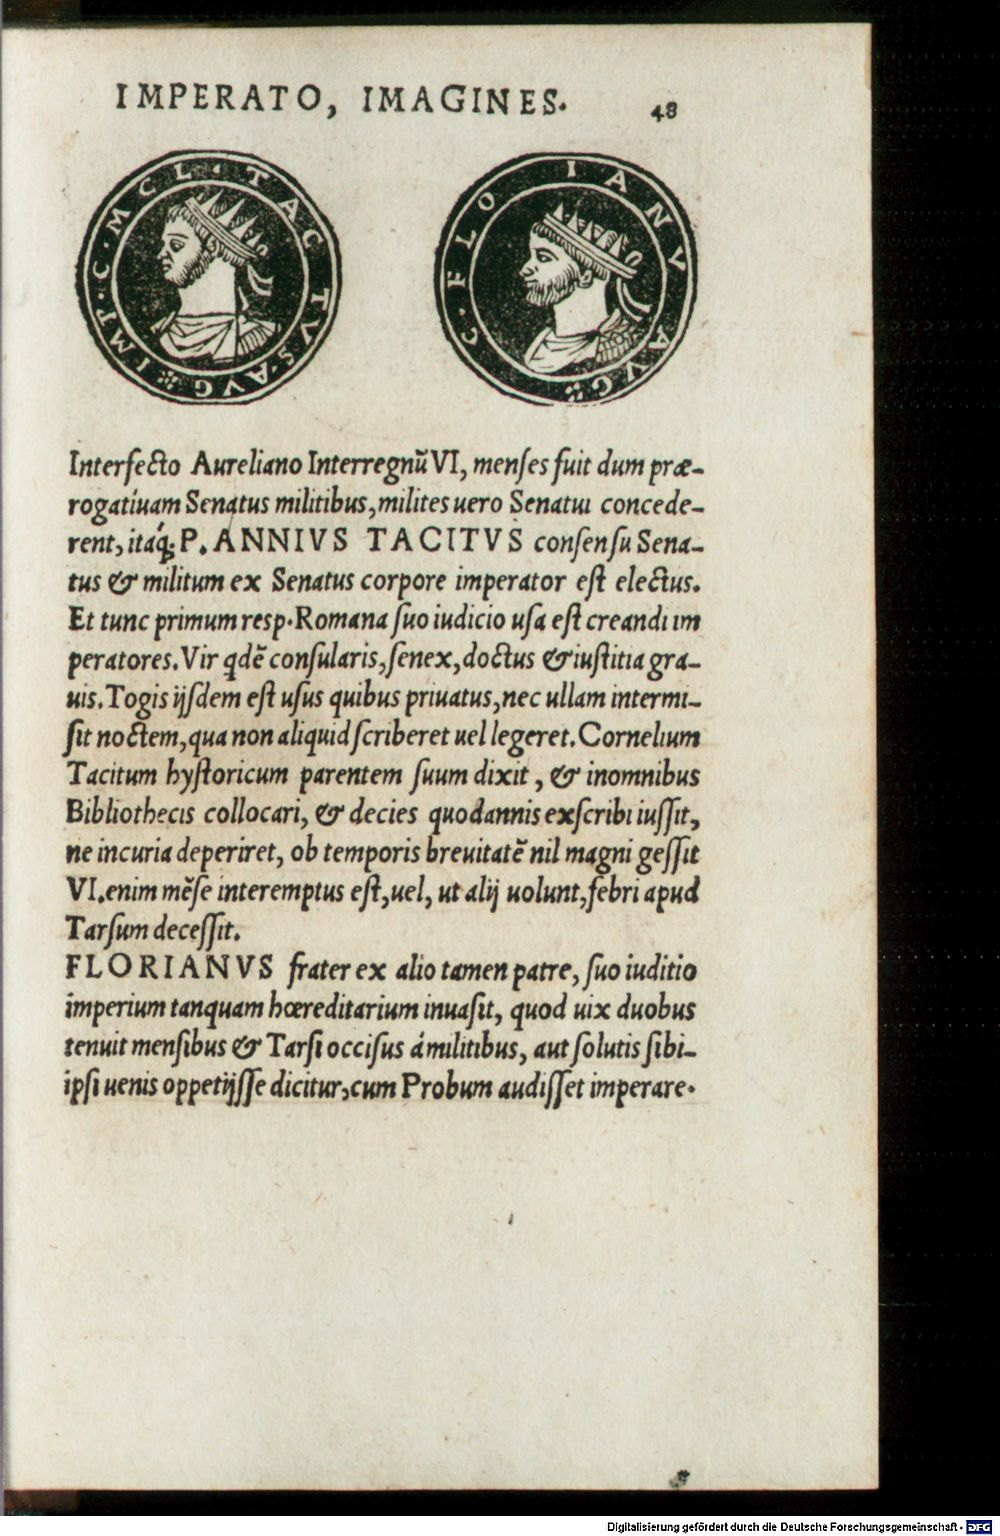 IMPERATO, IMAGINES.
48
IMP·C·MCL·TACTVS·AVG
C·FLO IANV AVG
Interfecto Aureliano Interregnũ VI, menſes fuit dum præ-
rogatiuam Senatus militibus, milites uero Senatui concede-
rent, itaq́; P. ANNIVS TACITVS conſenſu Sena-
tus & militum ex Senatus corpore imperator eſt electus.
Et tunc primum resp. Romana ſuo iudicio uſa eſt creandi im
peratores. Vir qdẽ conſularis, ſenex, doctus & iuſtitia gra-
uis. Togis ijſdem eſt uſus quibus priuatus, nec ullam intermi-
ſit noctem, qua non aliquid ſcriberet uel legeret. Cornelium
Tacitum hyſtoricum parentem ſuum dixit, & inomnibus
Bibliothecis collocari, & decies quodannis exſcribi iuſſit,
ne incuria deperiret, ob temporis breuitatẽ nil magni geſſit
VI. enim mẽſe interemptus eſt, uel, ut alij uolunt, febri apud
Tarſum deceſſit.
FLORIANVS frater ex alio tamen patre, ſuo iuditio
imperium tanquam hœreditarium inuaſit, quod uix duobus
tenuit menſibus & Tarſi occiſus á militibus, aut ſolutis ſibi-
ipſi uenis oppetijſſe dicitur, cum Probum audiſſet imperare.
Digitalisierung gefördert durch die Deutsche Forschungsgemeinschaft - DFG